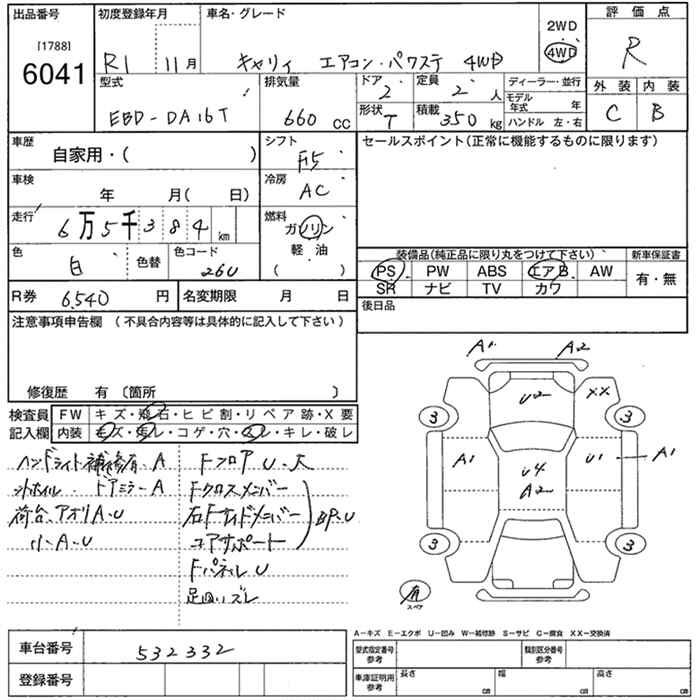 出品番号 初度登録年月 車名・グレード 2WD 評価点
[1788]
6041 R1 11月 キャリィ エアコン・パワステ 4WD 4WD R
型式 排気量 ドア 定員 ディーラー・並行 外装 内装
2 2人 モデル年式 年
EBD-DA16T 660cc 形状 T 積載 350kg ハンドル 左・右 C B
車歴 シフト セールスポイント(正常に機能するものに限ります)
自家用・( ) F5
車検 冷房
年 月( 日) AC
走行 燃料
6万5千384km ガソリン
色 色替 色コード 軽・油 装備品(純正品に限り丸をつけて下さい) 新車保証書
白 26U ( ) PS PW ABS エアB AW 有・無
R券 6,540円 名変期限 月 日 SR ナビ TV カワ
注意事項申告欄 (不具合内容等は具体的に記入して下さい) 後日品
修復歴 有 〔箇所 〕
検査員 FW キズ・飛石・ヒビ割・リペア跡・X要
記入欄 内装 キズ・汚レ・コゲ・穴・スレ・キレ・破レ
ハンドライト補修有.A Fフロア U.大
ドアミラーA Fクロスメンバー
荷台.アオリA.U 右Fサイドメンバー BP.U
小A.U コアサポート
Fパネル U
足回リズレ
A1 A2
U2 XX
3 3
A1 U4 U1 A1
A2
3 3
有
スペア
A-キズ E-エクボ U-凹み W-補修跡 S-サビ C-腐食 XX-交換済
車台番号 532332 型式指定番号 参考 類別区分番号 参考
登録番号 車庫証明用 参考 長さ cm 幅 cm 高さ cm